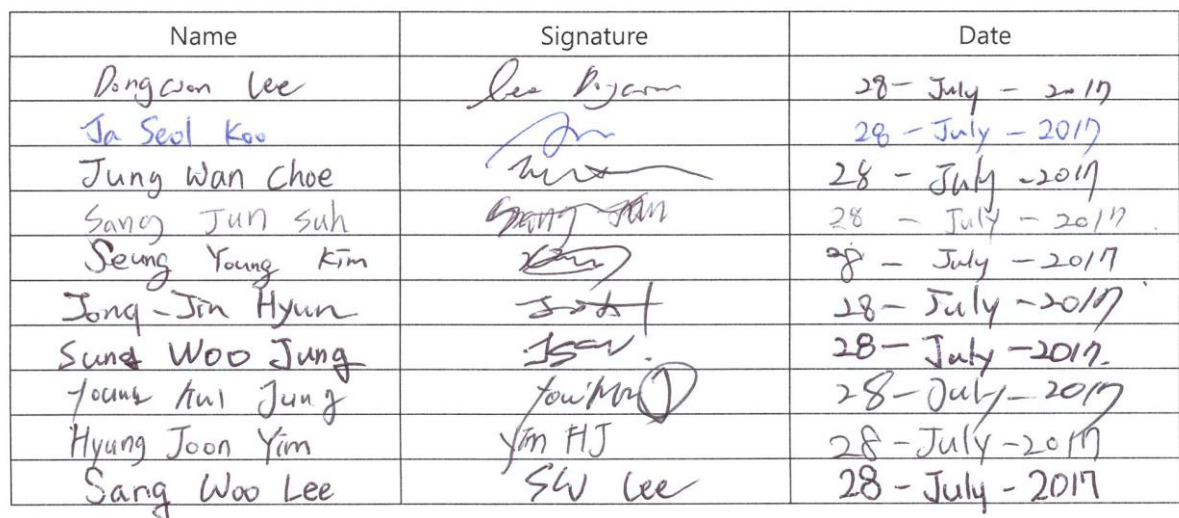 Name Signature Date
Dongwon Lee Lee Dongwon 28 - July - 2017
Ja Seol Koo 28 - July - 2017
Jung Wan Choe 28 - July - 2017
Sang Jun Suh Sang Jun 28 - July - 2017
Seung Young Kim 28 - July - 2017
Jong-Jin Hyun 28 - July - 2017
Sung Woo Jung JSW. 28 - July - 2017.
Young Kul Jung 28 - July - 2017
Hyung Joon Yim Yim HJ 28 - July - 2017
Sang Woo Lee SW Lee 28 - July - 2017